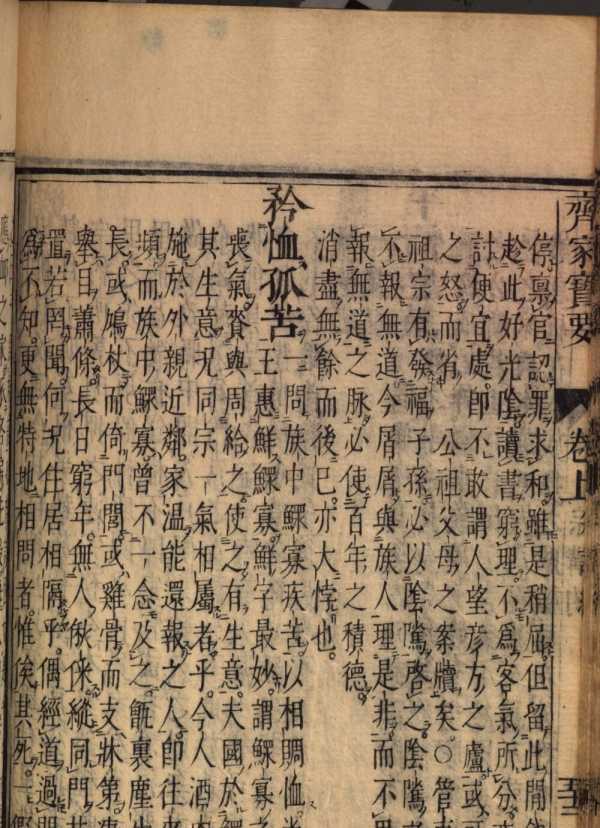 齊家寶要 卷上
停稟官認罪求和雖是稍屈但留此閒
趁此好光陰讀書窮理不爲客氣所分
討便宜處卽不敢謂人望彥方之廬或
之怒而省公祖父母之案牘矣○管
祖宗有發福子孫必以陰隲啓之陰隲
不報無道今屑屑與族人理是非而不
報無道之脉必使百年之積德
消盡無餘而後已亦大悖也
矜恤孤苦
一問族中鰥寡疾苦以相賙恤
王惠鮮鰥寡鮮字最妙謂鰥寡之
喪氣賫與周給之使之有生意夫國於
其生意况同宗一氣相屬者乎今人酒
施於外親近鄰家溫能還報之人卽往來
頻而族中鰥寡曾不一念及之甑裏塵生
長或鳩杖而倚門閭或雞骨而支牀第
舉目蕭條長日窮年無人俶倈縱同門
置若罔聞何况住居相隔乎偶經道過
爲不知更無特地相問者惟俟其死一